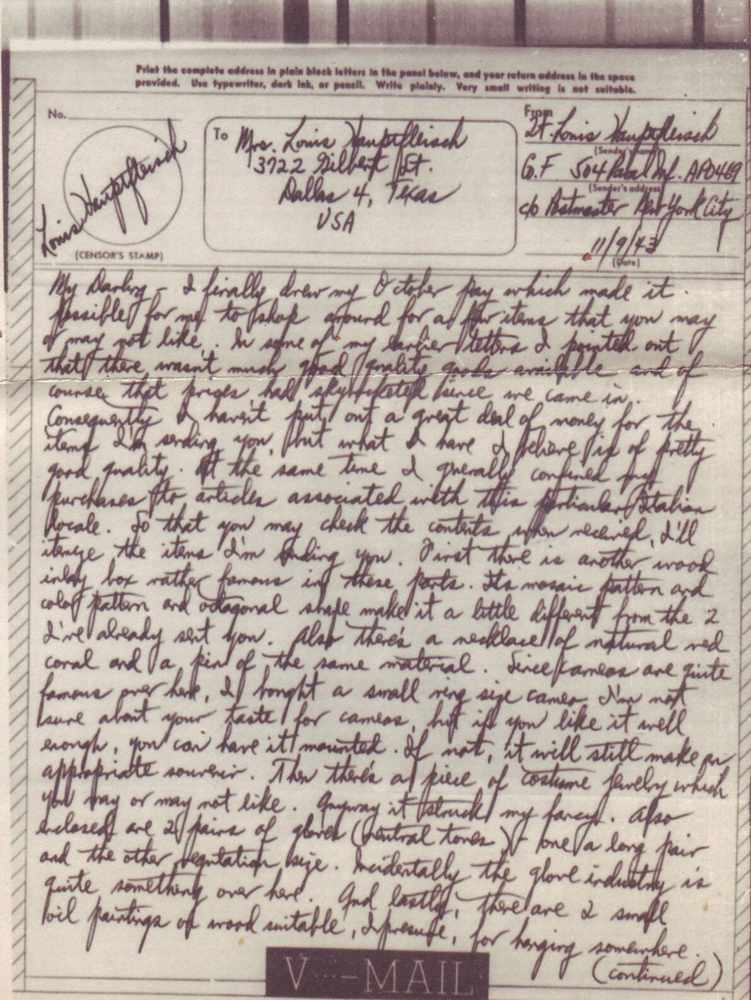 Print the complete address in plain block letters in the panel below, and your return address in the space
provided. Use typewriter, dark ink, or pencil. Write plainly. Very small writing is not suitable.
No.
Louis Hauptfleisch
(CENSOR'S STAMP)
To
Mrs. Louis Hauptfleisch
3722 Gilbert St.
Dallas 4, Texas
USA
From
Lt. Louis Hauptfleisch
(Sender's name)
504 APO 469
(Sender's address)
c/o Postmaster New York City
11/9/43
(Date)
My Darling – I finally drew my October pay which made it
possible for me to shop around for a few items that you may
or may not like. In some of my earlier letters I pointed out
that there wasn't much good quality goods available and of
course that prices had skyrocketed since we came in.
Consequently I haven't put out a great deal of money for the
items I'm sending you, but what I have I believe is of pretty
good quality. At the same time I generally confined my
purchases to articles associated with this particular Italian
locale. So that you may check the contents when received, I'll
itemize the items I'm sending you. First there is another wood
inlay box rather famous in these parts. Its mosaic pattern and
color pattern and octagonal shape make it a little different from the 2
I've already sent you. Also there's a necklace of natural red
coral and a pin of the same material. Since cameos are quite
famous over here, I bought a small ring size cameo. I'm not
sure about your taste for cameos, but if you like it well
enough, you can have it mounted. If not, it will still make an
appropriate souvenir. Then there's a piece of costume jewelry which
you may or may not like. Anyway it struck my fancy. Also
enclosed are 2 pairs of gloves (neutral tones) – one a long pair
and the other regulation size. Incidentally the glove industry is
quite something over here. And lastly, there are 2 small
oil paintings on wood suitable, I presume, for hanging somewhere.
(continued)
V···—MAIL